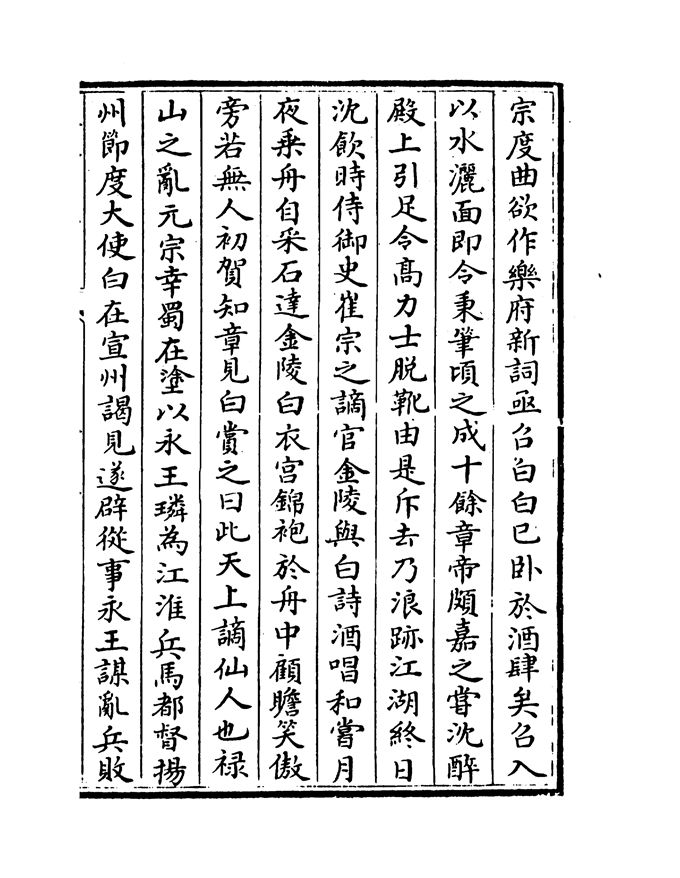 宗度曲欲作樂府新詞亟召白白已卧於酒肆矣召入
以水灑面即令秉筆頃之成十餘章帝頗嘉之甞沈醉
殿上引足令髙力士脱靴由是斥去乃浪跡江湖終日
沈飲時侍御史崔宗之謫官金陵與白詩酒唱和嘗月
夜乗舟自采石達金陵白衣宫錦袍於舟中顧瞻笑傲
旁若無人初賀知章見白賞之曰此天上謫仙人也禄
山之亂元宗幸蜀在塗以永王璘為江淮兵馬都督揚
州節度大使白在宣州謁見遂辟從事永王謀亂兵敗